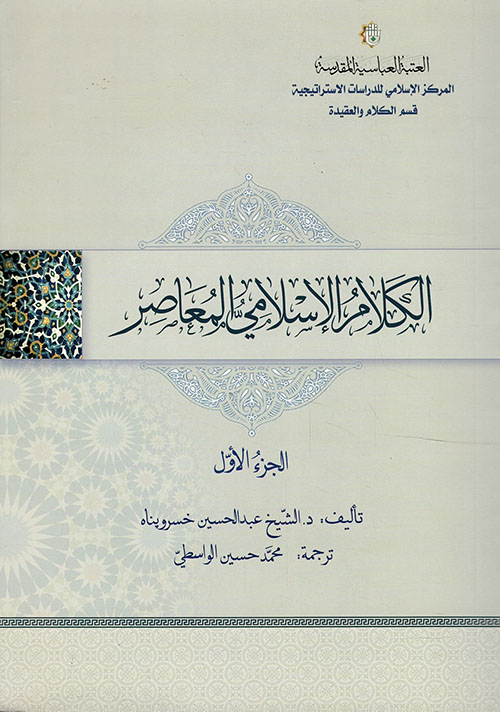 العتبة العباسية المقدسة
المركز الإسلامي للدراسات الاستراتيجية
قسم الكلام والعقيدة
الكلام الإسلاميّ المعاصر
الجزء الأوّل
تأليف: د. الشّيخ عبدالحسين خسروپناه
ترجمة: محمّد حسين الواسطيّ